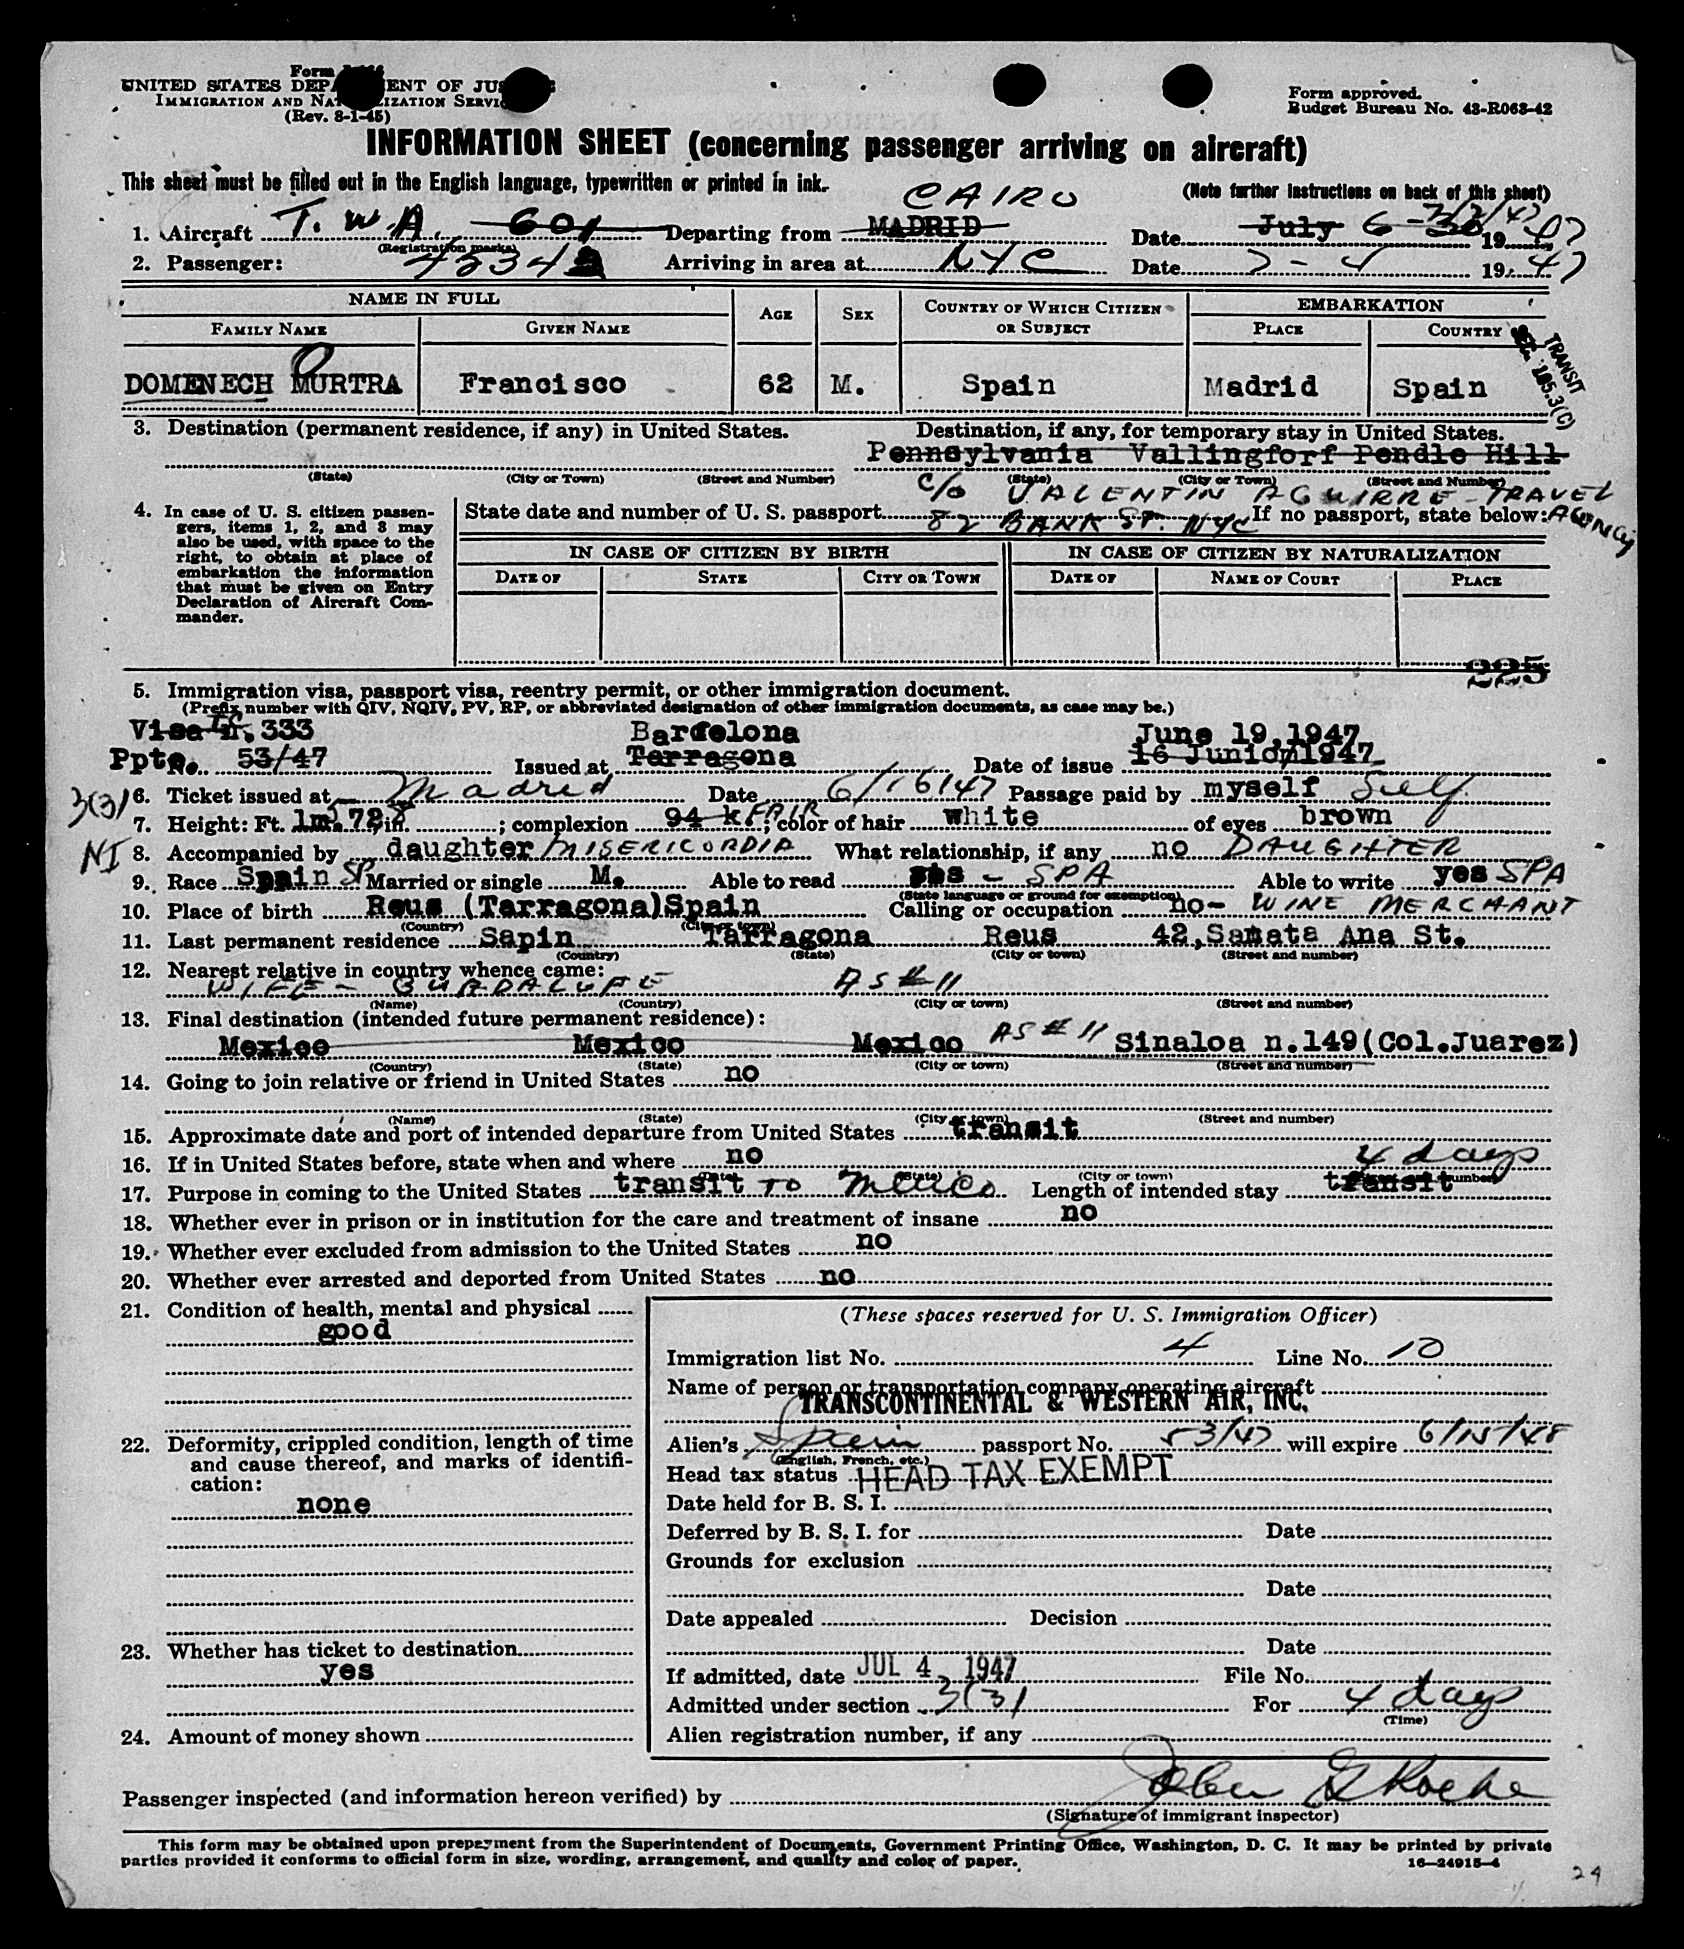 UNITED STATES DEPARTMENT OF JUSTICE
IMMIGRATION AND NATURALIZATION SERVICE
(Rev. 8-1-45)
Form approved.
Budget Bureau No. 43-R063-42
INFORMATION SHEET (concerning passenger arriving on aircraft)
This sheet must be filled out in the English language, typewritten or printed in ink.
(Note further instructions on back of this sheet)
CAIRO
1. Aircraft T.W.A. 601 Departing from MADRID Date July 6 1947
(Registration marks)
2. Passenger: Arriving in area at NYC Date 7-4 1947
NAME IN FULL AGE SEX COUNTRY OF WHICH CITIZEN OR SUBJECT EMBARKATION
FAMILY NAME GIVEN NAME PLACE COUNTRY
TRANSIT
165.3(C)
DOMENECH MURTRA Francisco 62 M. Spain Madrid Spain
3. Destination (permanent residence, if any) in United States. Destination, if any, for temporary stay in United States.
Pennsylvania Vallingforf Pendle Hill
(State) (City or Town) (Street and Number) (State) (City or Town) (Street and Number)
c/o VALENTIN AGUIRRE - TRAVEL AGENCY
82 BANK ST. NYC
4. In case of U. S. citizen passengers, items 1, 2, and 8 may also be used, with space to the right, to obtain at place of embarkation the information that must be given on Entry Declaration of Aircraft Commander.
State date and number of U. S. passport If no passport, state below:
IN CASE OF CITIZEN BY BIRTH IN CASE OF CITIZEN BY NATURALIZATION
DATE OF STATE CITY OR TOWN DATE OF NAME OF COURT PLACE
225
5. Immigration visa, passport visa, reentry permit, or other immigration document.
(Prefix number with QIV, NQIV, PV, RP, or abbreviated designation of other immigration documents, as case may be.)
Visa 333 Barcelona June 19,1947
Ppte No. 53/47 Issued at Tarragona Date of issue 16 Junio 1947
3(3) 6. Ticket issued at Madrid Date 6/16/47 Passage paid by myself Self
7. Height: Ft. 1m.72, in. ; complexion 94 k FAIR; color of hair white of eyes brown
NI 8. Accompanied by daughter MISERICORDIA What relationship, if any no DAUGHTER
9. Race Spain SP Married or single M. Able to read yes - SPA Able to write yes SPA
(State language or ground for exemption)
10. Place of birth Reus (Tarragona)Spain Calling or occupation no- WINE MERCHANT
(Country) (City or town)
11. Last permanent residence Sapin Tarragona Reus 42, Samata Ana St.
(Country) (State) (City or town) (Street and number)
12. Nearest relative in country whence came:
WIFE - GUADALUPE AS #11
(Name) (Country) (City or town) (Street and number)
13. Final destination (intended future permanent residence):
Mexico Mexico Mexico AS #11 Sinaloa n.149(Col.Juarez)
(Country) (State) (City or town) (Street and number)
14. Going to join relative or friend in United States no
(Name) (State) (City or town) (Street and number)
15. Approximate date and port of intended departure from United States transit
16. If in United States before, state when and where no 4 days
(State) (City or town)
17. Purpose in coming to the United States transit TO Mexico Length of intended stay transit
18. Whether ever in prison or in institution for the care and treatment of insane no
19. Whether ever excluded from admission to the United States no
20. Whether ever arrested and deported from United States no
21. Condition of health, mental and physical
good
22. Deformity, crippled condition, length of time and cause thereof, and marks of identification:
none
23. Whether has ticket to destination
yes
24. Amount of money shown
(These spaces reserved for U. S. Immigration Officer)
Immigration list No. 4 Line No. 10
Name of person or transportation company operating aircraft
TRANSCONTINENTAL & WESTERN AIR, INC.
Alien's Spain passport No. 53/47 will expire 6/15/48
(English, French, etc.)
Head tax status HEAD TAX EXEMPT
Date held for B. S. I.
Deferred by B. S. I. for Date
Grounds for exclusion
Date
Date appealed Decision
Date
If admitted, date JUL 4 1947 File No.
Admitted under section 3(3) For 4 days
(Time)
Alien registration number, if any
Passenger inspected (and information hereon verified) by
(Signature of immigrant inspector)
This form may be obtained upon prepayment from the Superintendent of Documents, Government Printing Office, Washington, D. C. It may be printed by private
parties provided it conforms to official form in size, wording, arrangement, and quality and color of paper.
16—24915-4
29